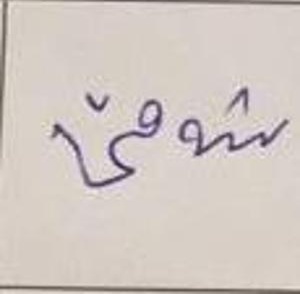 شوقي